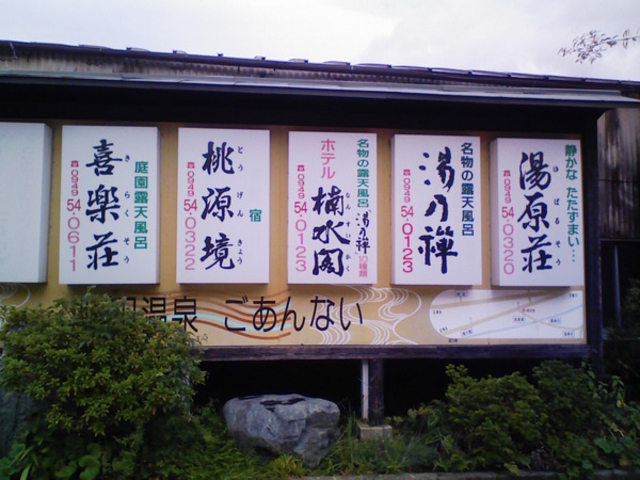 静かな たたずまい…
湯原荘
ゆばるそう
☎0949 54-0320
名物の露天風呂
湯乃禅
☎0949 54-0123
名物の露天風呂
湯乃禅
10種類
ホテル
楠水閣
なんすいかく
☎0949 54-0123
宿
桃源境
とうげんきょう
☎0949 54-0173
庭園露天風呂
喜楽荘
きらくそう
☎0949 54-0611
温泉 ごあんない